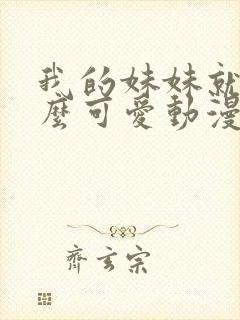 我的妹妹就
麼可愛動漫
齊玄宗